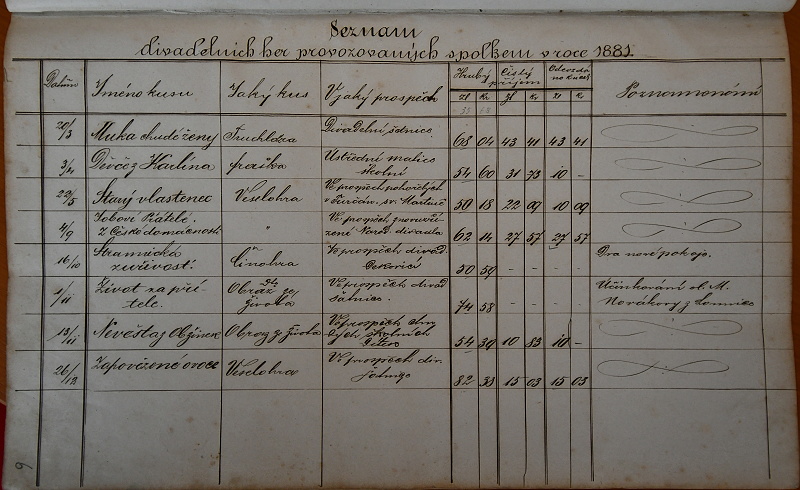 Seznam
divadelních her provozovaných spolkem v roce 1881.
Datum Jméno kusu Jaký kus V jaký prospěch Hrubý Čistý příjem Odevzdáno Poznamenání
zl kr zl kr zl kr
20/3 Muka chudé ženy Truchlohra Divadelní 68 04 43 41 43 41
3/4 Děvče z Karlína fraška Ústřední matice školní 54 60 31 73 10 -
22/5 Starý vlastenec Veselohra Ve prospěch pohořelých 50 18 22 09 10 09
4/9 Jobovi Přátelé.
Z České domácnosti " Ve prospěch Národ. divadla 62 14 27 57 27 57
16/10 Stranická zuřivost. Činohra Ve prospěch divad. 50 59 - - - - Dva nové pokoje.
1/11 Život za přítele. Obraz ze života Ve prospěch divad. 74 58 - - - - Účinkování ol. M. Novákovy z Lomnice
13/11 Nevěsta z Obraz ze života Ve prospěch chudých školních 54 39 10 83 10 -
26/12 Zapovězené ovoce Veselohra Ve prospěch div. 82 33 15 03 15 03
9